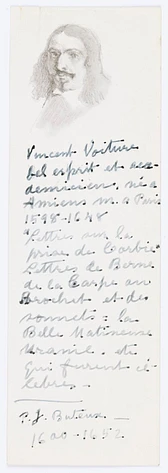 Vincent Voiture
bel esprit et aca-
démicien, né à
Amiens m. à Paris
1598-1648
"Lettres sur la
prise de Corbie"
Lettres de Berne
de la Carpe au
Brochet et des
sonnets: la
Belle Matineuse
Uranie, etc
qui furent cé-
lèbres.-
P. J. Buteux
1600-1652